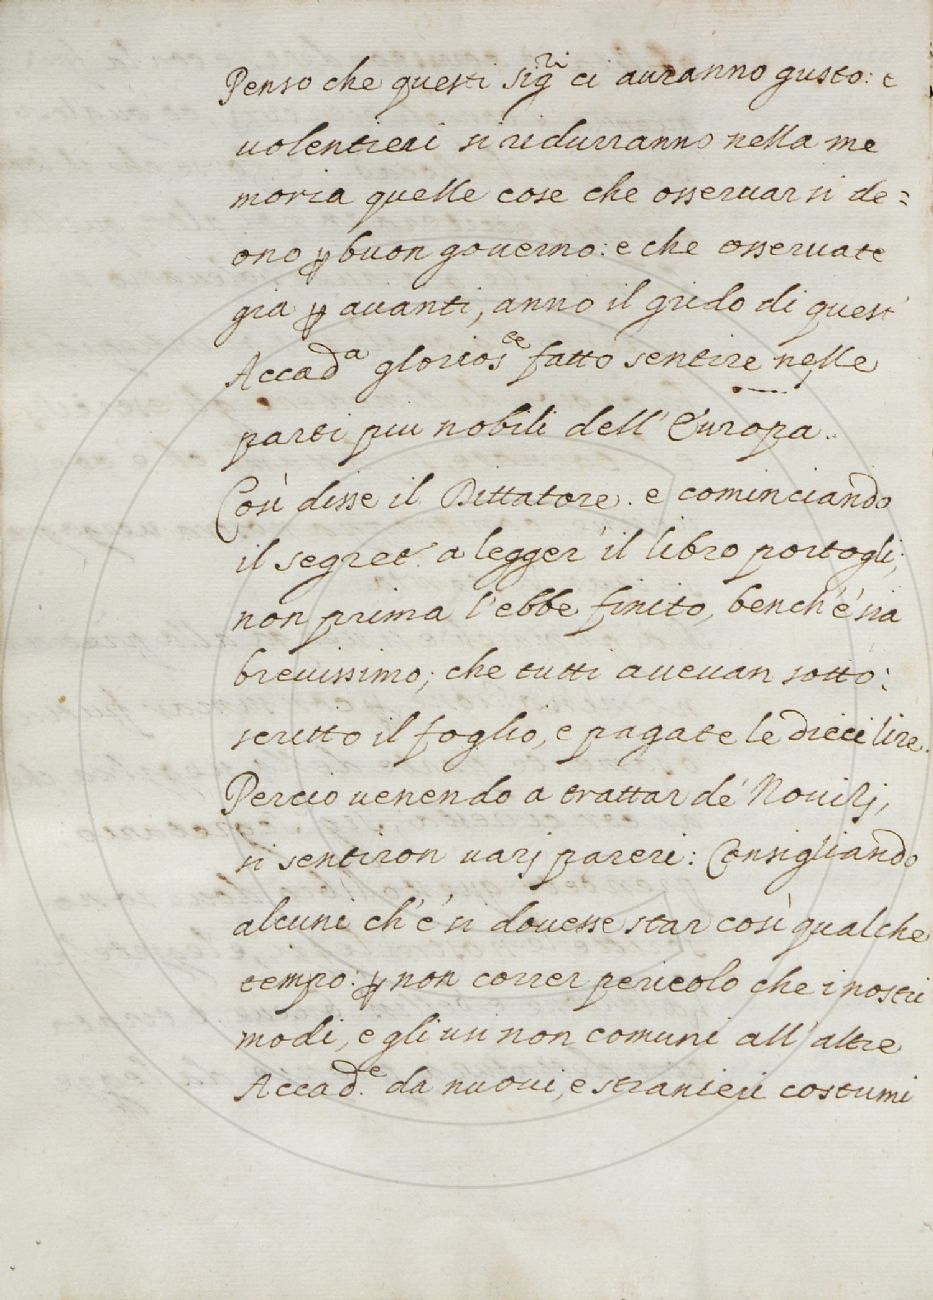 Penso che questi sig.ri ci auranno gusto: e
uolentieri si ridurranno nella me
moria quelle cose che osseruar si de=
ono ꝑ buon gouerno: e che osseruate
gia ꝑ auanti, anno il grido di quest'
Accad.a glorios.te fatto sentire nelle
parti piu nobili dell' Europa.
Così disse il Dittatore. e cominciando
il segret.o a legger il libro portogli;
non prima l'ebbe finito, bench'é sia
breuissimo; che tutti aueuan sotto:
scritto il foglio, e pagate le dieci lire.
Percio uenendo a trattar de' Nouizj,
si sentiron uarj pareri: Consigliando
alcuni ch'é si douesse star così qualche
tempo: ꝑ non correr pericolo che i nostri
modi, e gli usi non comuni all' altre
Accad.e da nuoui, e stranieri costumi